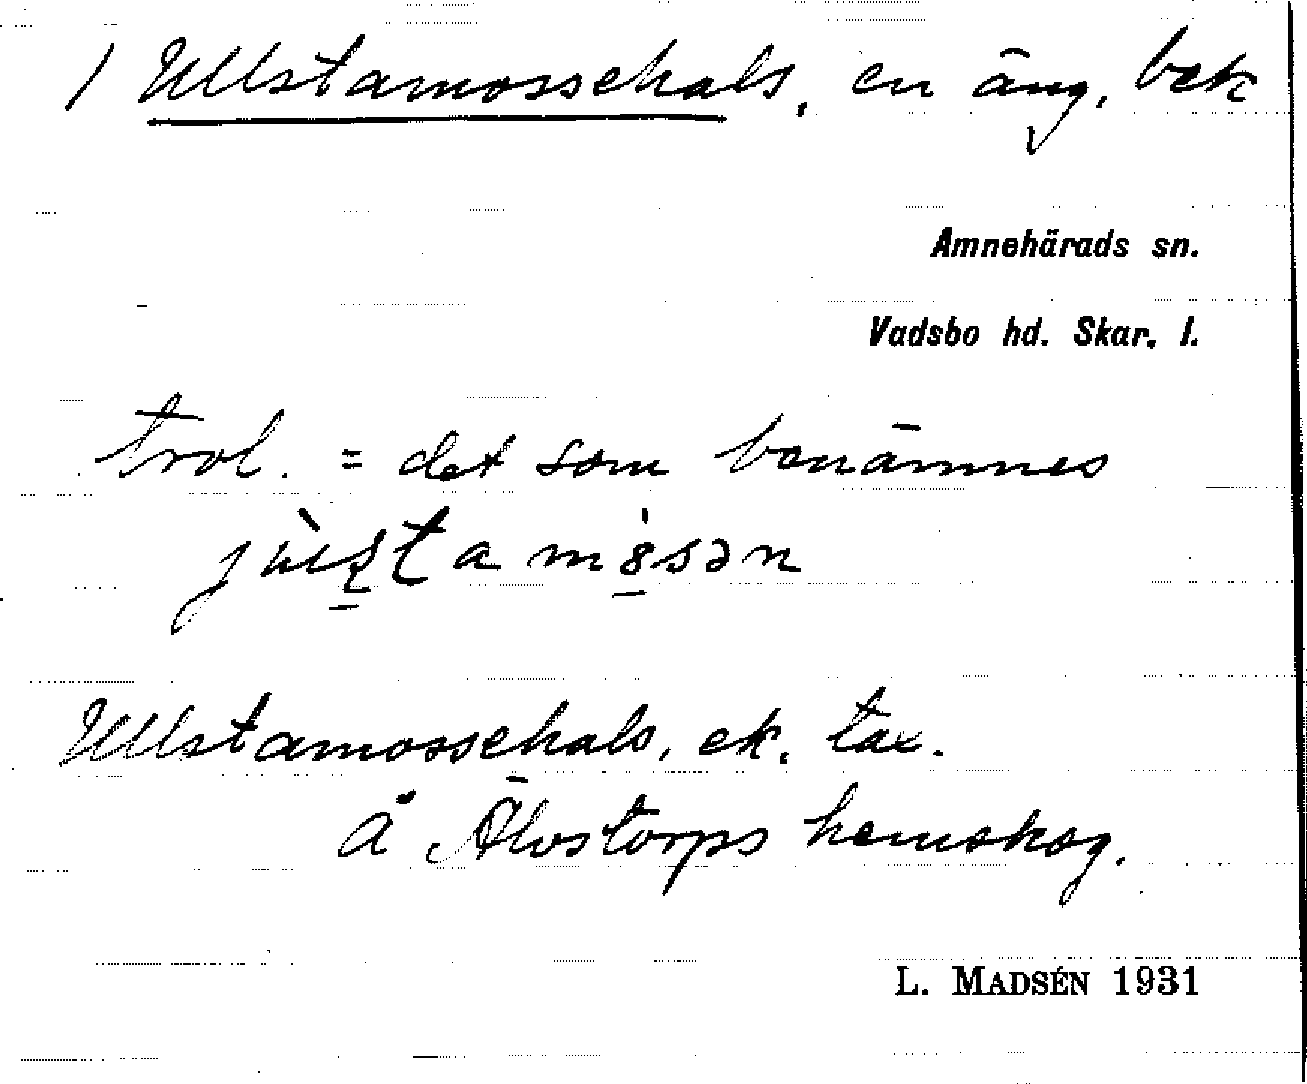 1 Ullstamossehals, en äng, bek
Amnehärads sn.
Vadsbo hd. Skar. l.
trol. = det som benämnes
Ullstamossehals, ek. tax.
Å Älvstorps hemskog.
L. MADSÉN 1931